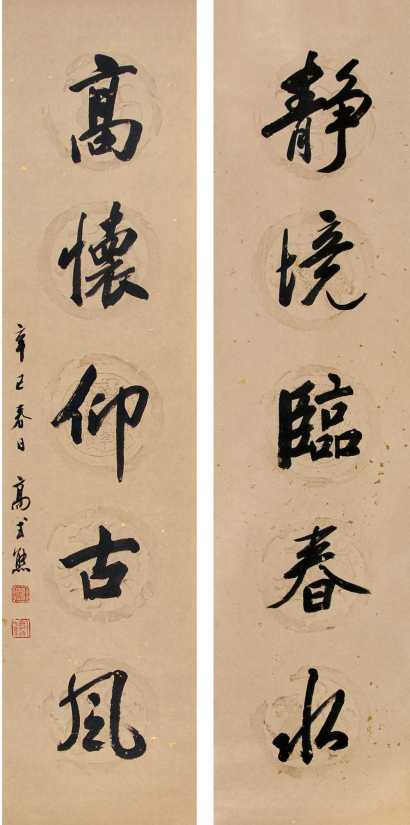 静境臨春水
高懷仰古风
辛巳春日 高式熊